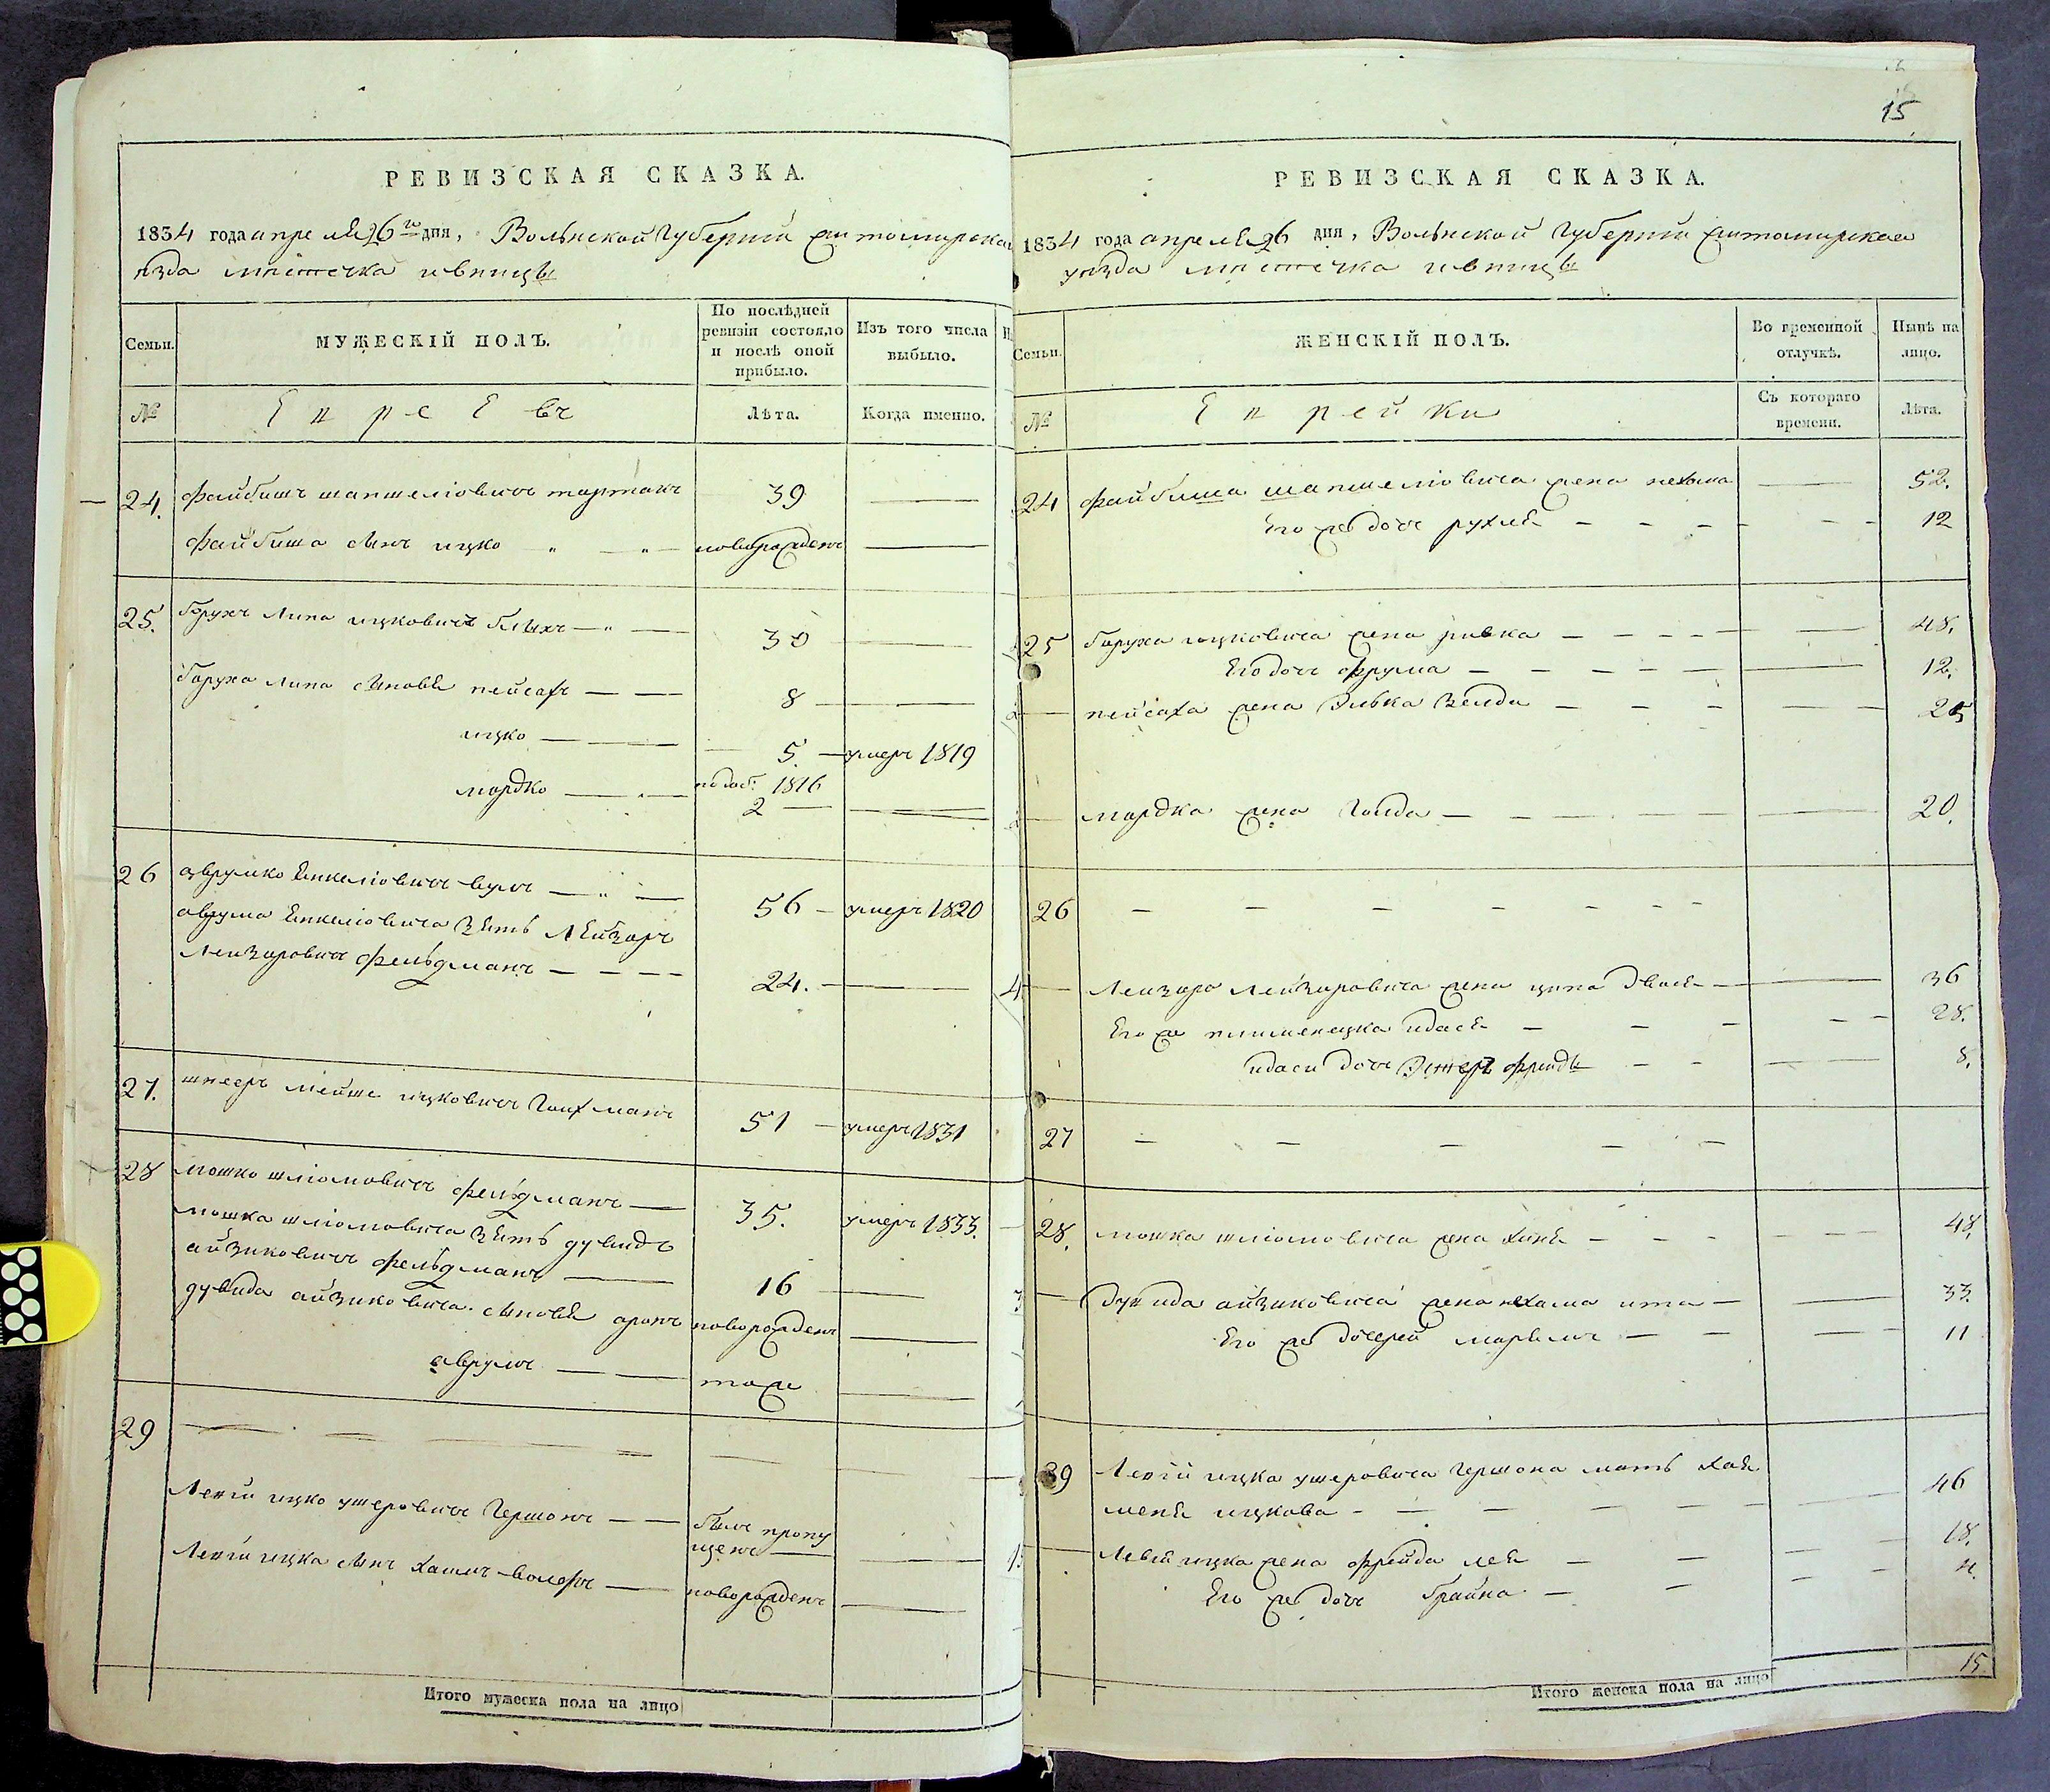 РЕВИЗСКАЯ СКАЗКА.
1834 года апреля 26го дня, Волынской Губернии Житомирска
езда местечка ивницы
Семьи.
МУЖЕСКІЙ ПОЛЪ.
По послѣдней ревизіи состояло и послѣ оной прибыло.
Изъ того числа выбыло.
№
Евреевъ
Лѣта.
Когда именно.
24. файбишъ шапшеліовичъ тартакъ 39
файбиша сынъ ицко новорожденъ
25. борухъ липа ицковичъ 30
боруха липа сыновя пейсахъ 8
ицко 5. умеръ 1819
мордко 1816
2
26 аврумко янкеліовичъ 56 умеръ 1820
аврума янкеліовича зять лейзоръ
лейзоровичъ фельдманъ 24.
27. шнееръ мейше ицковичъ гоихманъ 51 умеръ 1831
28 мошко шліомовичъ фельдманъ 35. умеръ 1833.
мошка шліомовича зять дувидъ
айзиковичъ фельдманъ 16
дувида айзиковича сыновя аронъ новорожденъ
аврумъ тоже
29
ицко ушеровичъ гершонъ былъ пропу
щенъ
ицка сынъ хаимъ волфъ новорожденъ
Итого мужеска пола на лицо
15
РЕВИЗСКАЯ СКАЗКА.
1834 года апреля 26 дня, Волынской Губернии Житомирскаго
уезда местечка ивницы
Семьи.
ЖЕНСКІЙ ПОЛЪ.
Во временной отлучкѣ.
Нынѣ на лицо.
№
Еврейки
Съ котораго времени.
Лѣта.
24 файбиша шапшеліовича жена нехама 52.
Его же дочь рухля 12
25 боруха ицковича жена ривка 48.
Его дочь фрума 12.
пейсаха жена элька зелда 25
мордка жена голда 20.
26
лейзора лейзоровича жена ципа двося 36
Его же племеница идася 28.
идаси дочь эстеръ фрейды 8.
27
28. мошка шліомовича жена хиня 48.
дувида айзиковича жена нехама ита 33.
Его же дочерей марьямъ 11
29 ицка ушеровича гершона мать хая
меня ицкова 46
ицка жена фрейда лея 18.
Его же дочь брайна
Итого женска пола на лицо 15.